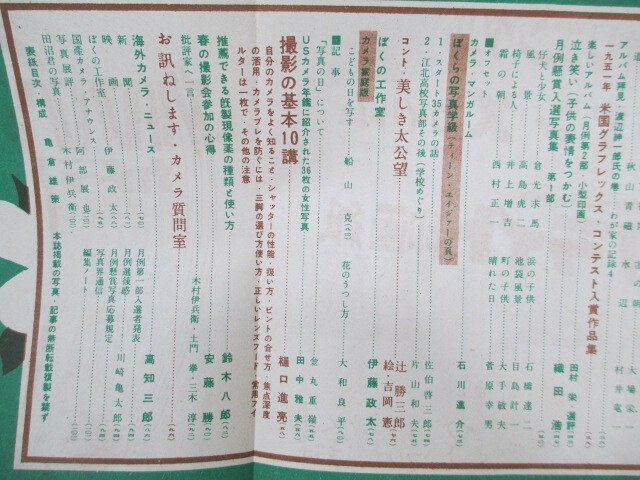 秋山青磁
水辺
大場栄一
アルバム拝見 渡辺紳一郎氏の巻 わが家の記録4
村井竜一
一九五一年 米国グラフレックス・コンテスト入賞作品集
楽しいアルバム(月例第2部 小型印画)
泣き笑い(子供の表情をつかむ)
田村 栄・選評
織田 浩
月例懸賞入選写真集 第1部
仔犬と少女 倉光求馬
浜の子供 石橋達二
風景 高島虎二
池袋風景 目島計一
椅子による人 井上増吉
町の子供 大手敏夫
霜の朝 西村正一
晴れた日 菅原幸男
■オフセット
カメラ・マンガルーム 石川進介
ぼくらの写真学級(ティーン・エイジャーの頁)
1・スタート35カメラの話 佐伯啓三郎
2・江北高校写真部その後(学校めぐり) 片山和夫
コント・美しき太公望
辻勝三郎
絵・吉岡憲
ぼくの工作室 伊藤政太
カメラ家庭版
こどもの日を写す 船山 克
花のうつし方 大和良平
■記事
「写真の日」について 金丸重嶺
USカメラ年鑑に紹介された36枚の女性写真 田中雅夫
撮影の基本10講 樋口進亮
自分のカメラをよく知ること・シャッターの性能・扱い方・ピントの合せ方・焦点深度
の活用・カメラブレを防ぐには・三脚の選び方使い方・正しいレンズフード・常用フィ
ルターは一枚で・その他の注意
推薦できる既製現像薬の種類と使い方 鈴木八郎
春の撮影会参加の心得 安藤 勝
批評家へ一言 木村伊兵衛・土門 拳・三木 淳
お訊ねします・カメラ質問室
海外カメラ・ニュース 高知三郎
新聞
映画 伊藤政太
ぼくの工作室
国産カメラ・アナウンス
写真展評 阿部展也
田沼君の写真 木村伊兵衛
月例第一部入選者発表
月例選後感 川崎亀太郎
月例懸賞写真応募規定
写真界通信
編集ノート
表紙目次・構成 亀倉雄策
本誌掲載の写真・記事の無断転載複製を禁ず